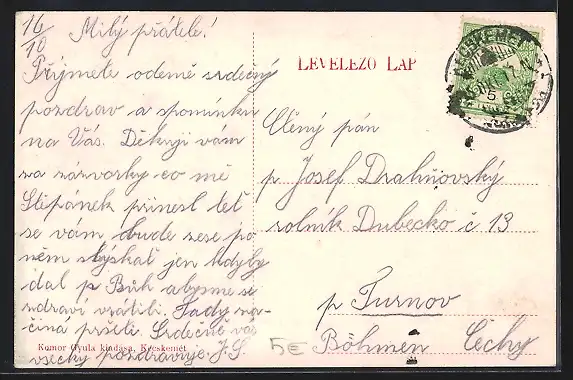 16/10 Milý příteli!
Přijmete odemě srdečný
pozdrav a spomínku
na Vás. Děkuji vám
za zázvorky co mě
Štěpánek přinesl teť
se vám bude zese po
něm stýskať jen kdyby
dal p Bůh abysme se
zdraví vrátili. Tady za-
čína pršeti. Srdečně vás
všecky pozdravuje. J. S.
Komor Gyula kiadása, Kecskemét
LEVELEZŐ LAP
KECSKEMÉT
Ctěný pán
p Josef Drahňovský
rolník Dubecko č 13
p Turnov
Böhmen Čechy
5E